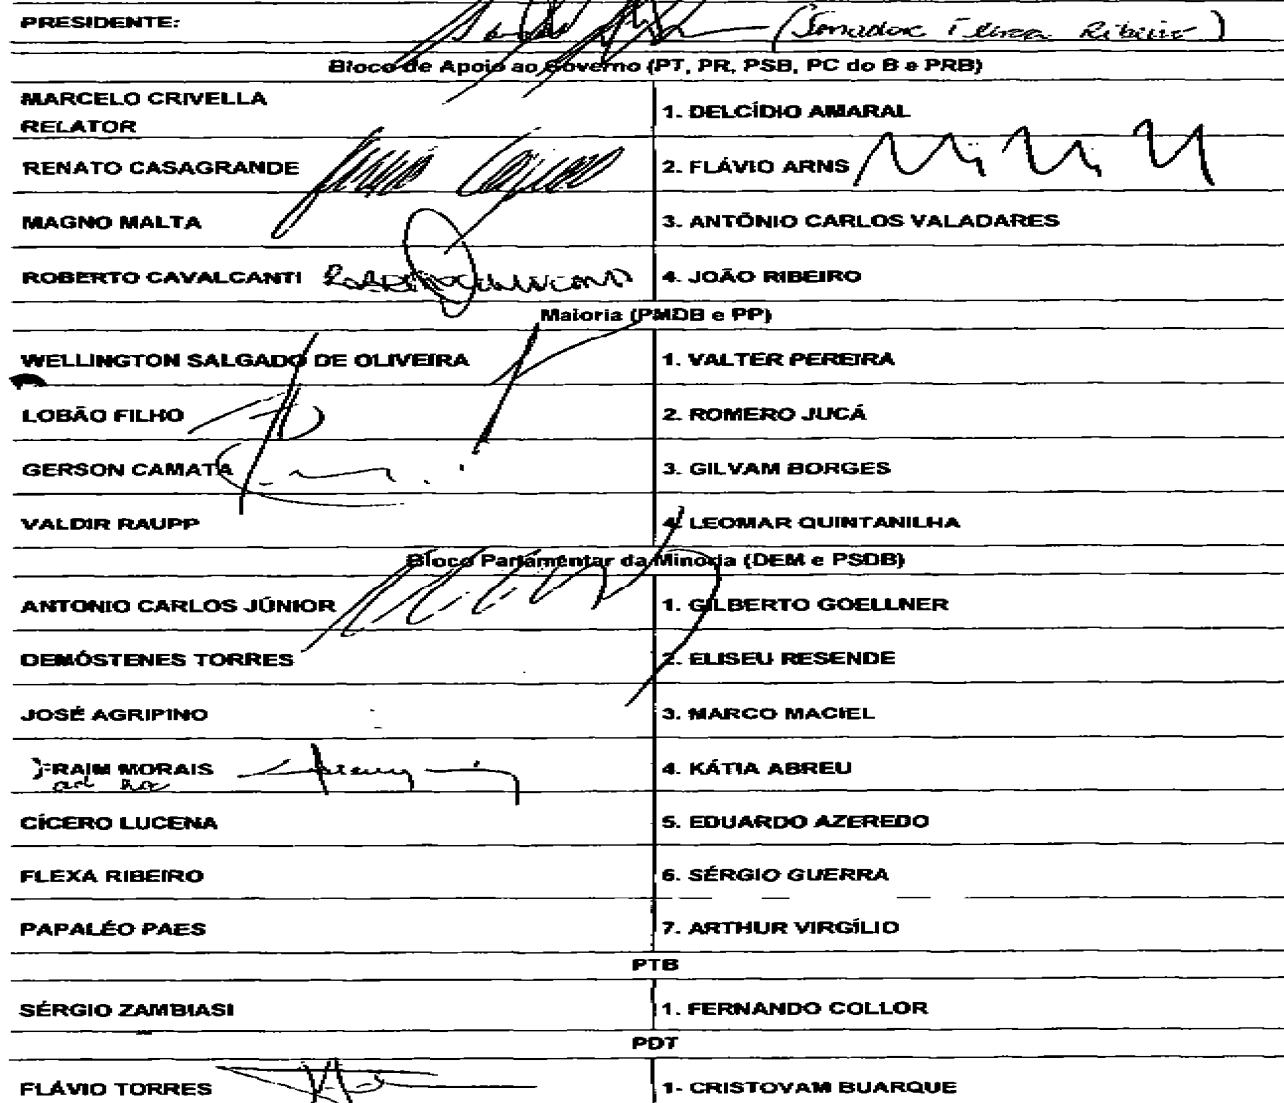 PRESIDENTE: (Senador Flexa Ribeiro)
Bloco de Apoio ao Governo (PT, PR, PSB, PC do B e PRB)
MARCELO CRIVELLA
RELATOR
1. DELCÍDIO AMARAL
RENATO CASAGRANDE
2. FLÁVIO ARNS
MAGNO MALTA
3. ANTÔNIO CARLOS VALADARES
ROBERTO CAVALCANTI
4. JOÃO RIBEIRO
Maioria (PMDB e PP)
WELLINGTON SALGADO DE OLIVEIRA
1. VALTER PEREIRA
LOBÃO FILHO
2. ROMERO JUCÁ
GERSON CAMATA
3. GILVAM BORGES
VALDIR RAUPP
4. LEOMAR QUINTANILHA
Bloco Parlamentar da Minoria (DEM e PSDB)
ANTONIO CARLOS JÚNIOR
1. GILBERTO GOELLNER
DEMÓSTENES TORRES
2. ELISEU RESENDE
JOSÉ AGRIPINO
3. MARCO MACIEL
FRAIM MORAIS
ad hoc
4. KÁTIA ABREU
CÍCERO LUCENA
5. EDUARDO AZEREDO
FLEXA RIBEIRO
6. SÉRGIO GUERRA
PAPALÉO PAES
7. ARTHUR VIRGÍLIO
PTB
SÉRGIO ZAMBIASI
1. FERNANDO COLLOR
PDT
FLÁVIO TORRES
1- CRISTOVAM BUARQUE